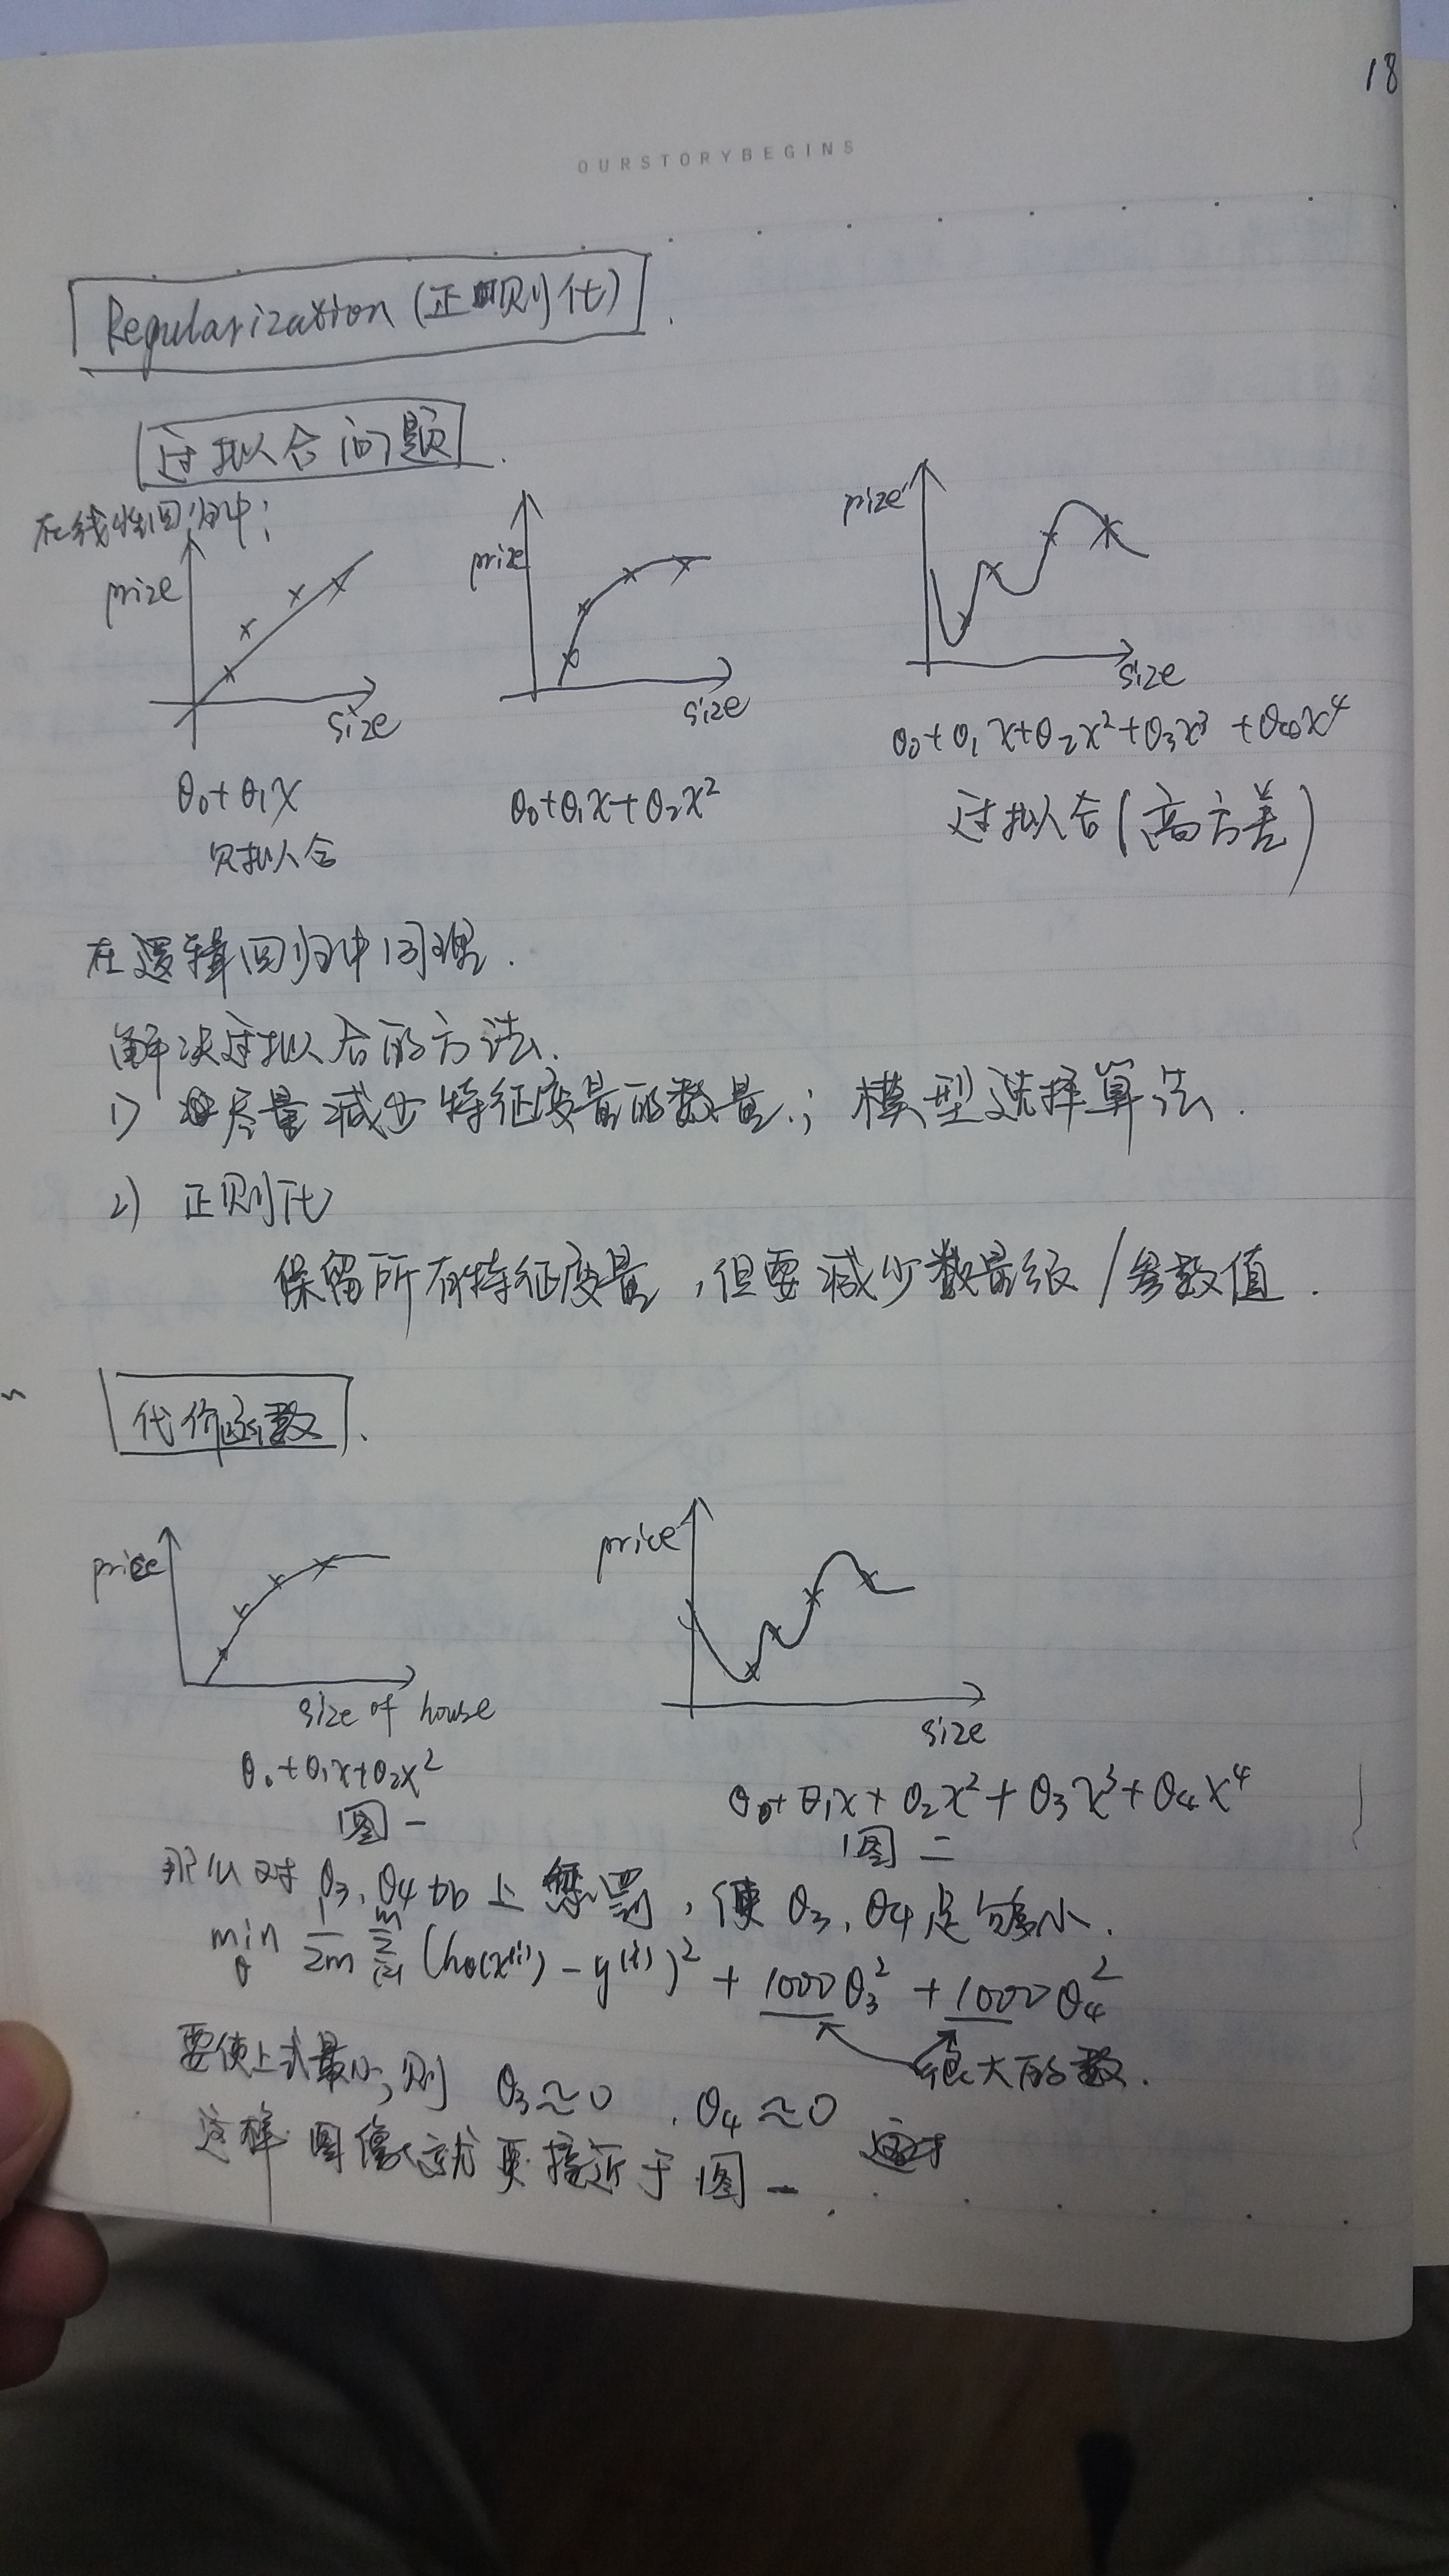 18
OURSTORYBEGINS
Regularization (正则化).
过拟合问题.
在线性回归中:
prize
price
prize
size
size
size
θ₀+θ₁x
θ₀+θ₁x+θ₂x²
θ₀+θ₁x+θ₂x²+θ₃x³+θ₄x⁴
欠拟合
过拟合(高方差)
在逻辑回归中同理.
解决过拟合的方法.
1) 尽量减少特征度量的数量.; 模型选择算法.
2) 正则化
保留所有特征度量,但要减少数量级/参数值.
代价函数.
price
price
size of house
size
θ₀+θ₁x+θ₂x²
θ₀+θ₁x+θ₂x²+θ₃x³+θ₄x⁴
图一
图二
那么对θ₃、θ₄加上惩罚,使θ₃、θ₄足够小.
min_θ 1/2m Σ_{i=1}^m (h_θ(x⁽ⁱ⁾) - y⁽ⁱ⁾)² + 1000θ₃² + 1000θ₄²
很大的数.
要使上式最小,则 θ₃≈0 , θ₄≈0
这样图像就更接近于图一.